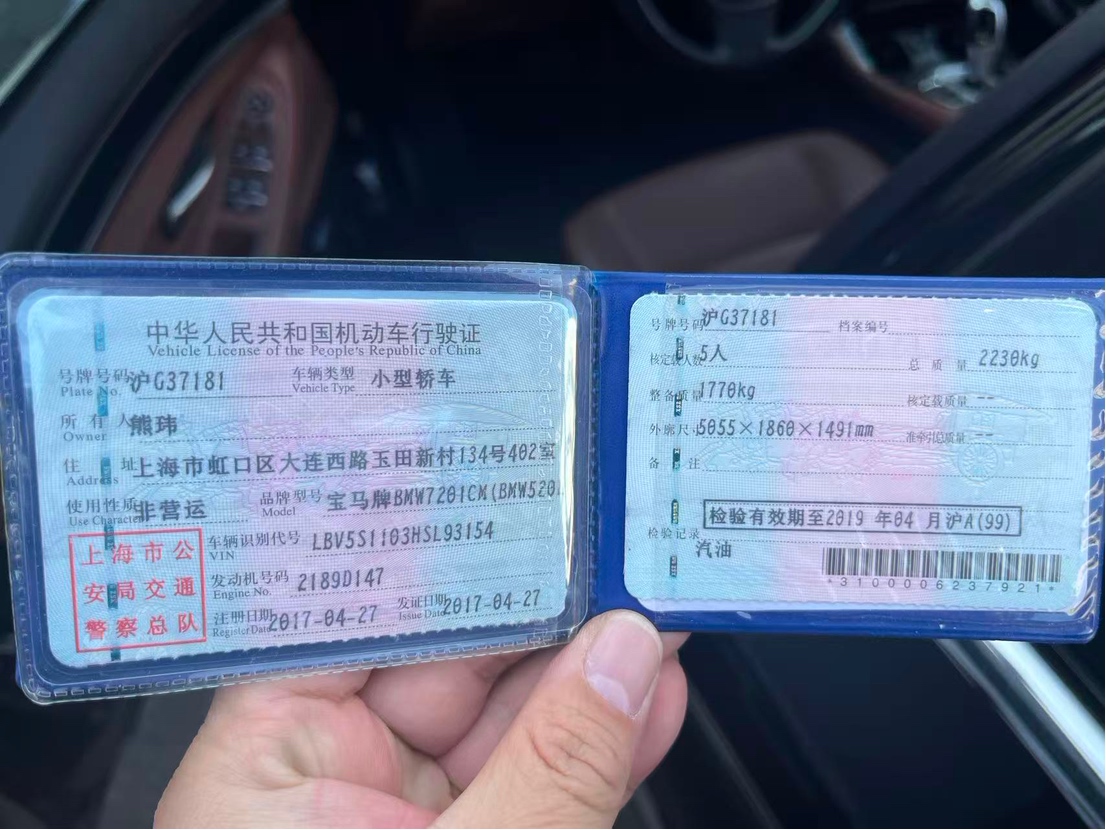 中华人民共和国机动车行驶证
Vehicle License of the People's Republic of China
号牌号码 沪G37181 车辆类型 小型轿车
Plate No. Vehicle Type
所有人 熊玮
Owner
住址 上海市虹口区大连西路玉田新村134号402室
Address
使用性质 非营运 品牌型号 宝马牌BMW7201CM(BMW520
Use Character Model
上海市公
安局交通
警察总队
车辆识别代号 LBV5S1103HSL93154
VIN
发动机号码 2189D147
Engine No.
注册日期 2017-04-27 发证日期 2017-04-27
Register Date Issue Date
号牌号码 沪G37181 档案编号
核定载人数 5人 总质量 2230kg
整备质量 1770kg 核定载质量 --
外廓尺寸 5055×1860×1491mm 准牵引总质量 --
备注
检验有效期至2019 年04 月沪A(99)
检验记录
汽油
*3100006237921*